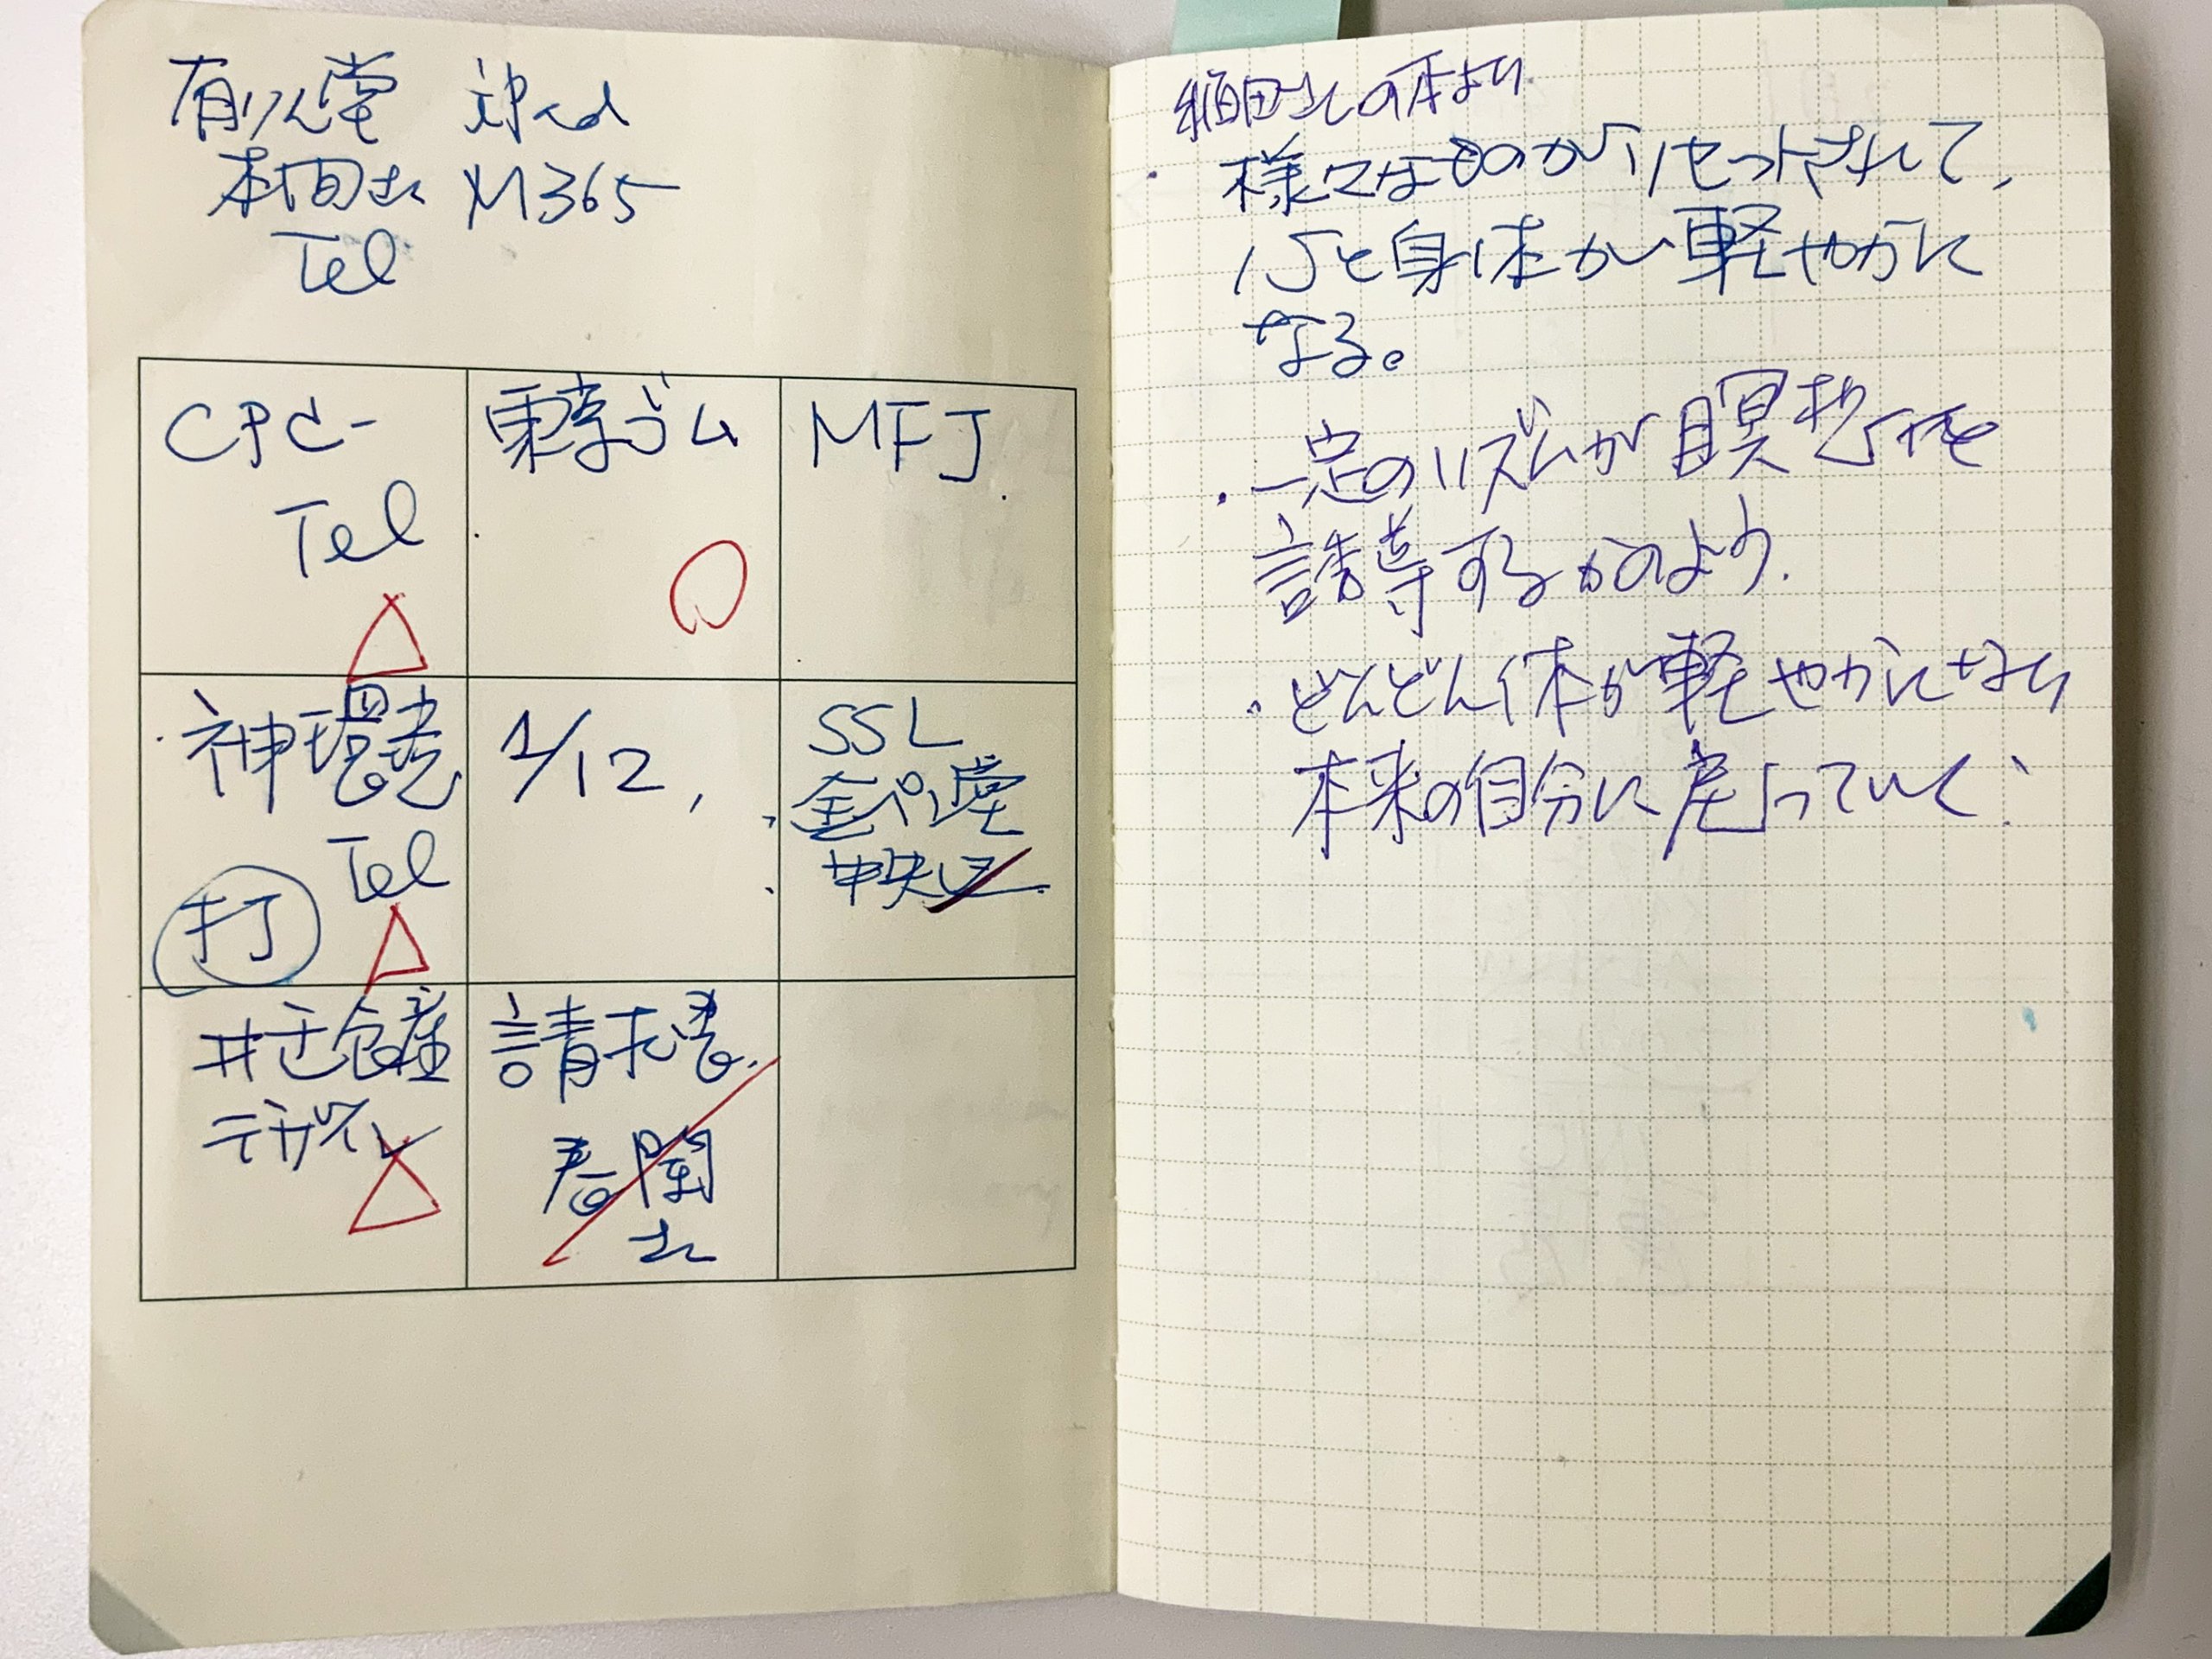 有りん堂 iPad
本間さん M365
Tel
CPC-
Tel
東京ゴム
MFJ
神環境
Tel
打
1/12
SSL
金ペン堂
中央
請求書
植田さんの本より
・様々なものがリセットされて、
心と身体が軽やかに
なる。
・一定のリズムが瞑想を
誘導するかのよう.
・どんどん体が軽やかになり
本来の自分に戻っていく